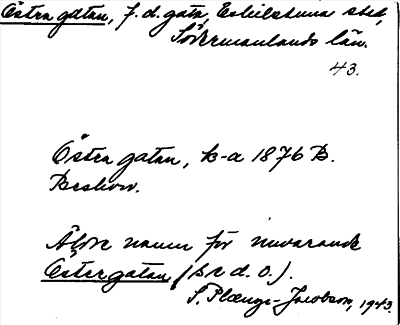 Östra gatan, f. d. gata, Eskilstuna stad,
Södermanlands län.
43.
Östra gatan, k-a 1876 B.
Beskow.
Äldre namn för nuvarande
Östergatan (s e d. o.).
S. Plænge-Jacobson, 1943.